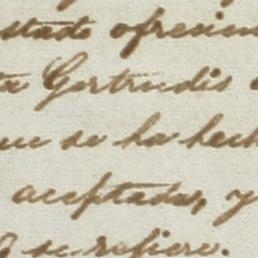 stado ofresien
ta Gertrudis
ue se ha hech
aceptada, y
se refiere.